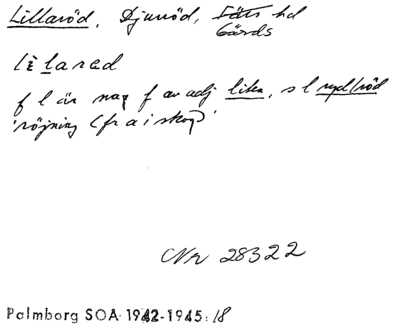 Lillaröd, Djuröd, Fårs hd
Gärds
lìlarœd
f l är nog f av adj liten, s l ryd/röd
'röjning (fr a i skog)'
Nr 28322
Palmborg SOA 1942-1945:18